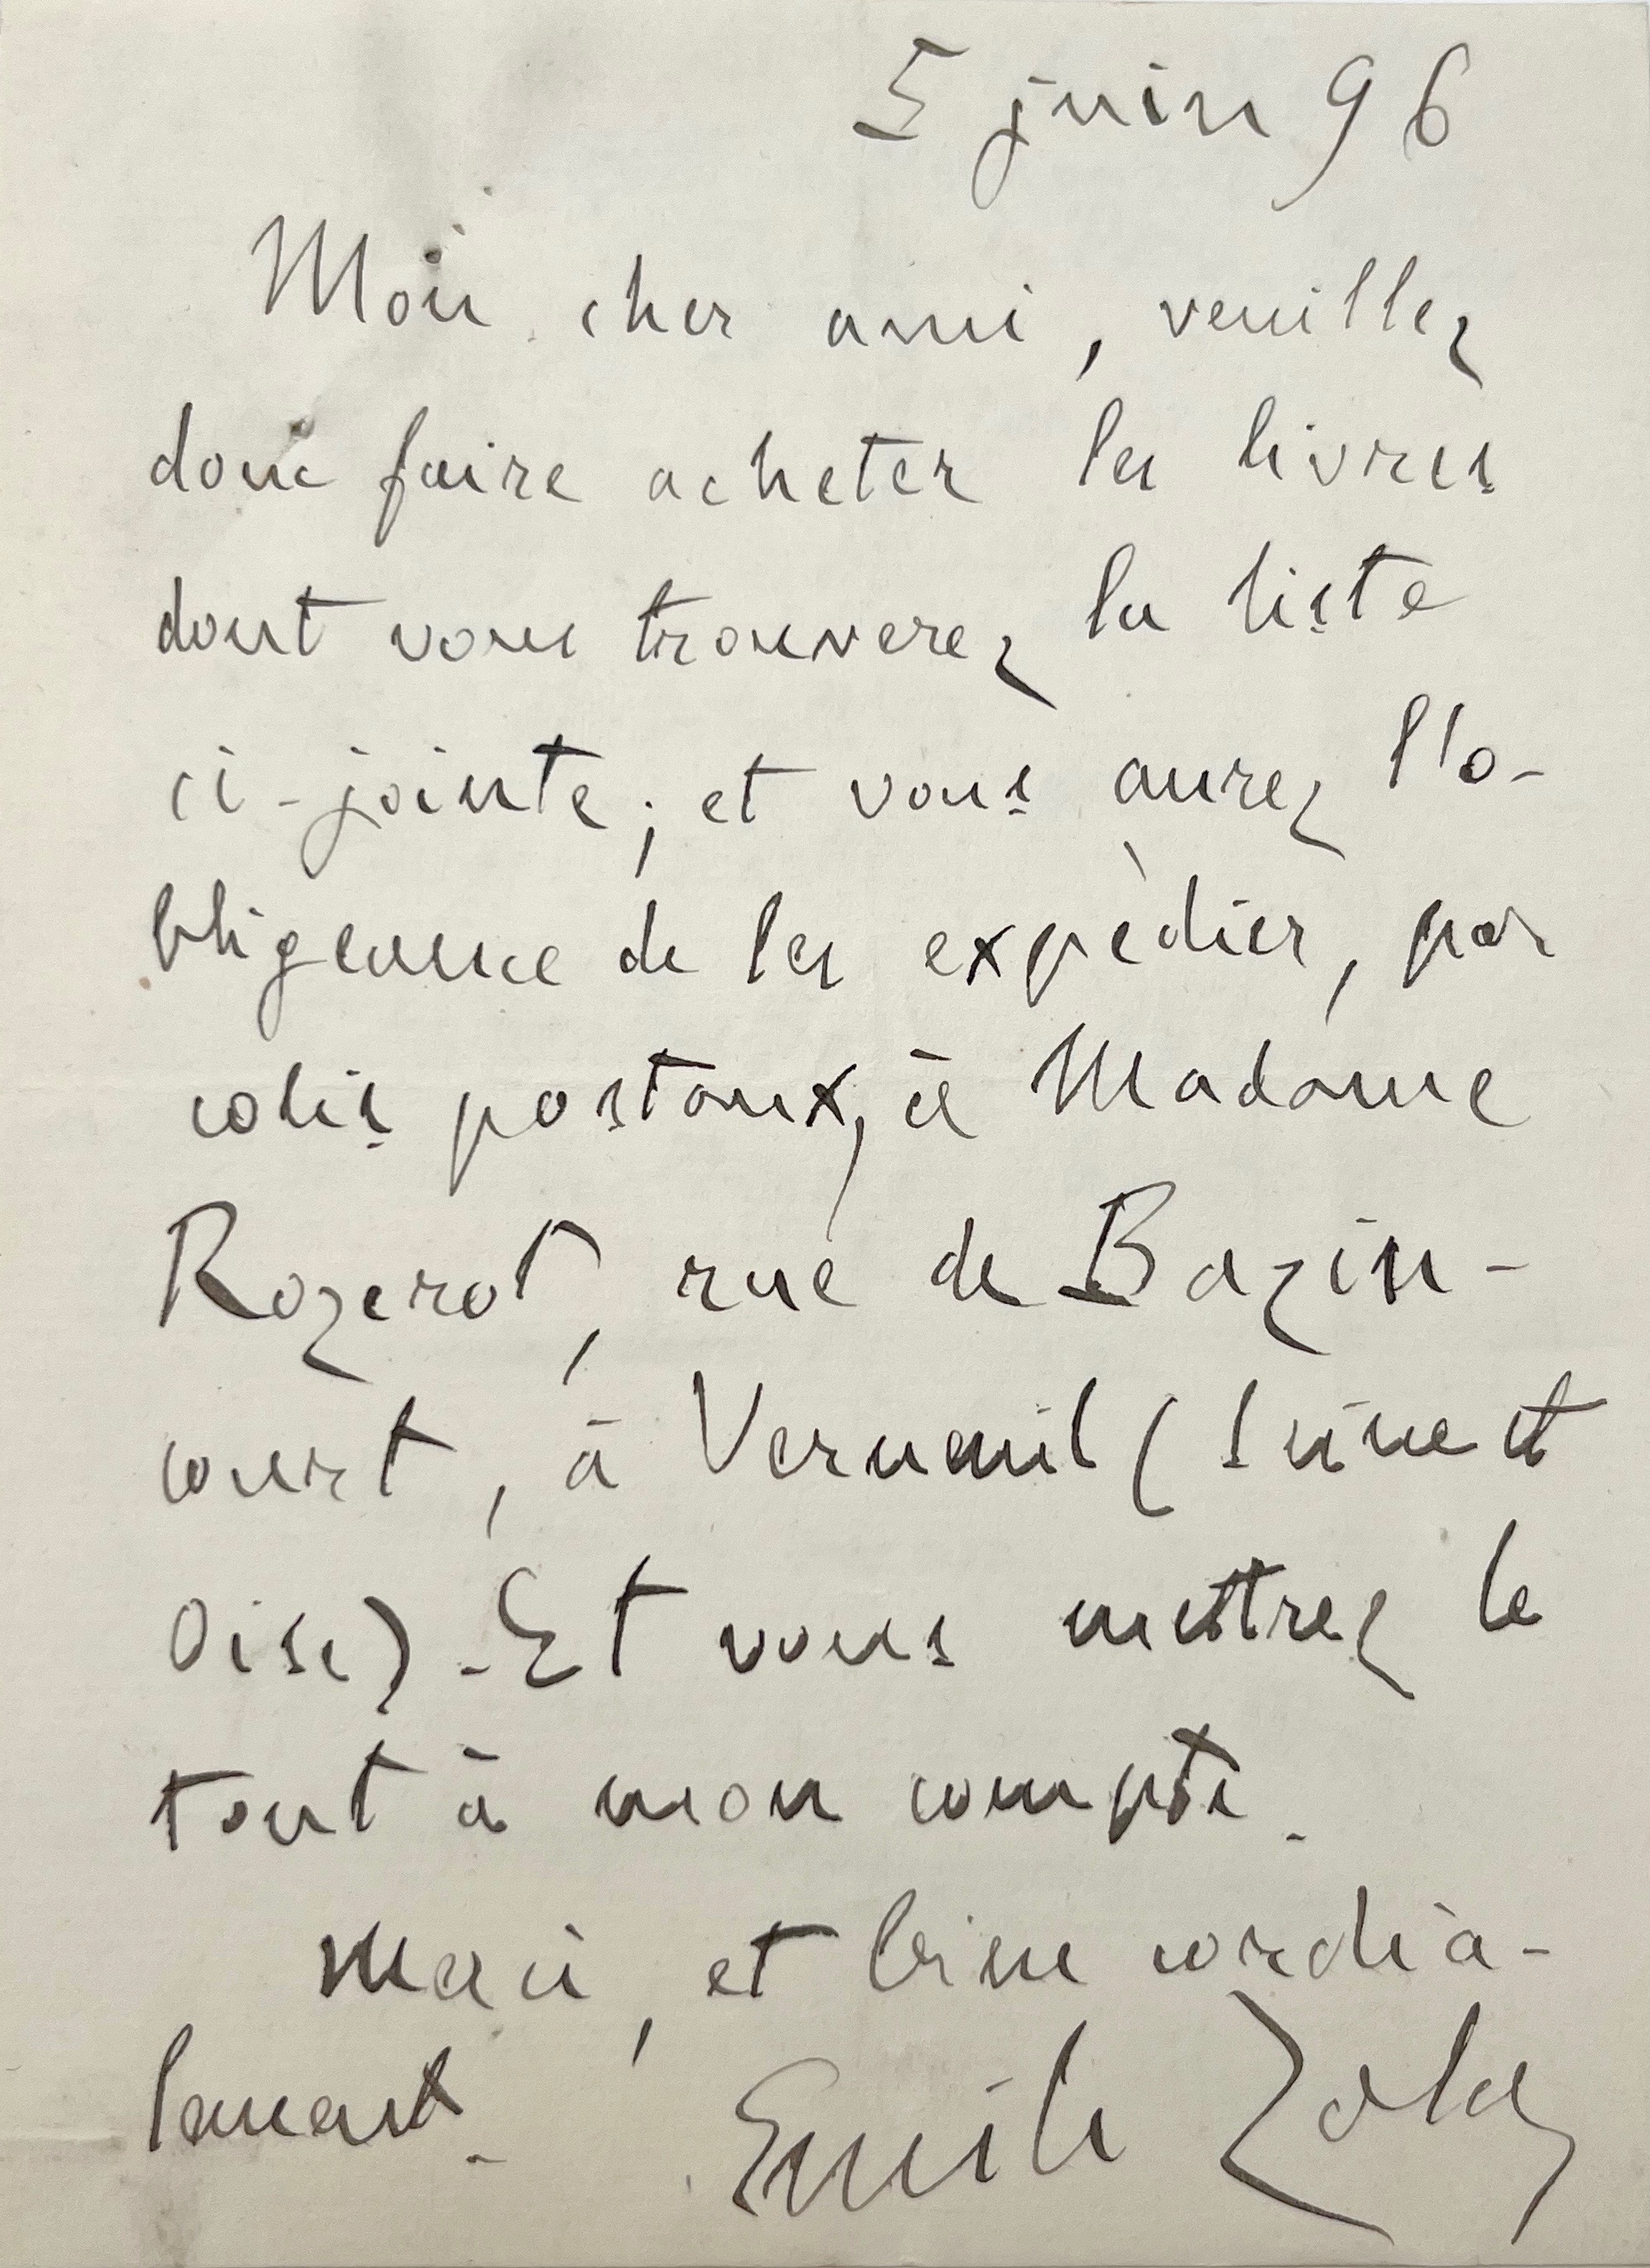 5 juin 96
Mon cher ami, veuillez
donc faire acheter les livres
dont vous trouverez la liste
ci-jointe; et vous aurez l'o-
bligeance de les expédier, par
colis postaux, à Madame
Rozerot, rue de Bazin-
court, à Verneuil (Seine et
Oise). Et vous mettrez le
tout à mon compte.
Merci, et bien cordia-
lement.
Emile Zola